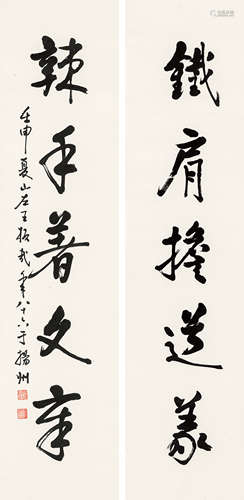 鐵肩擔道義
辣手著文章
壬申夏山左王板哉年八十六于揚州